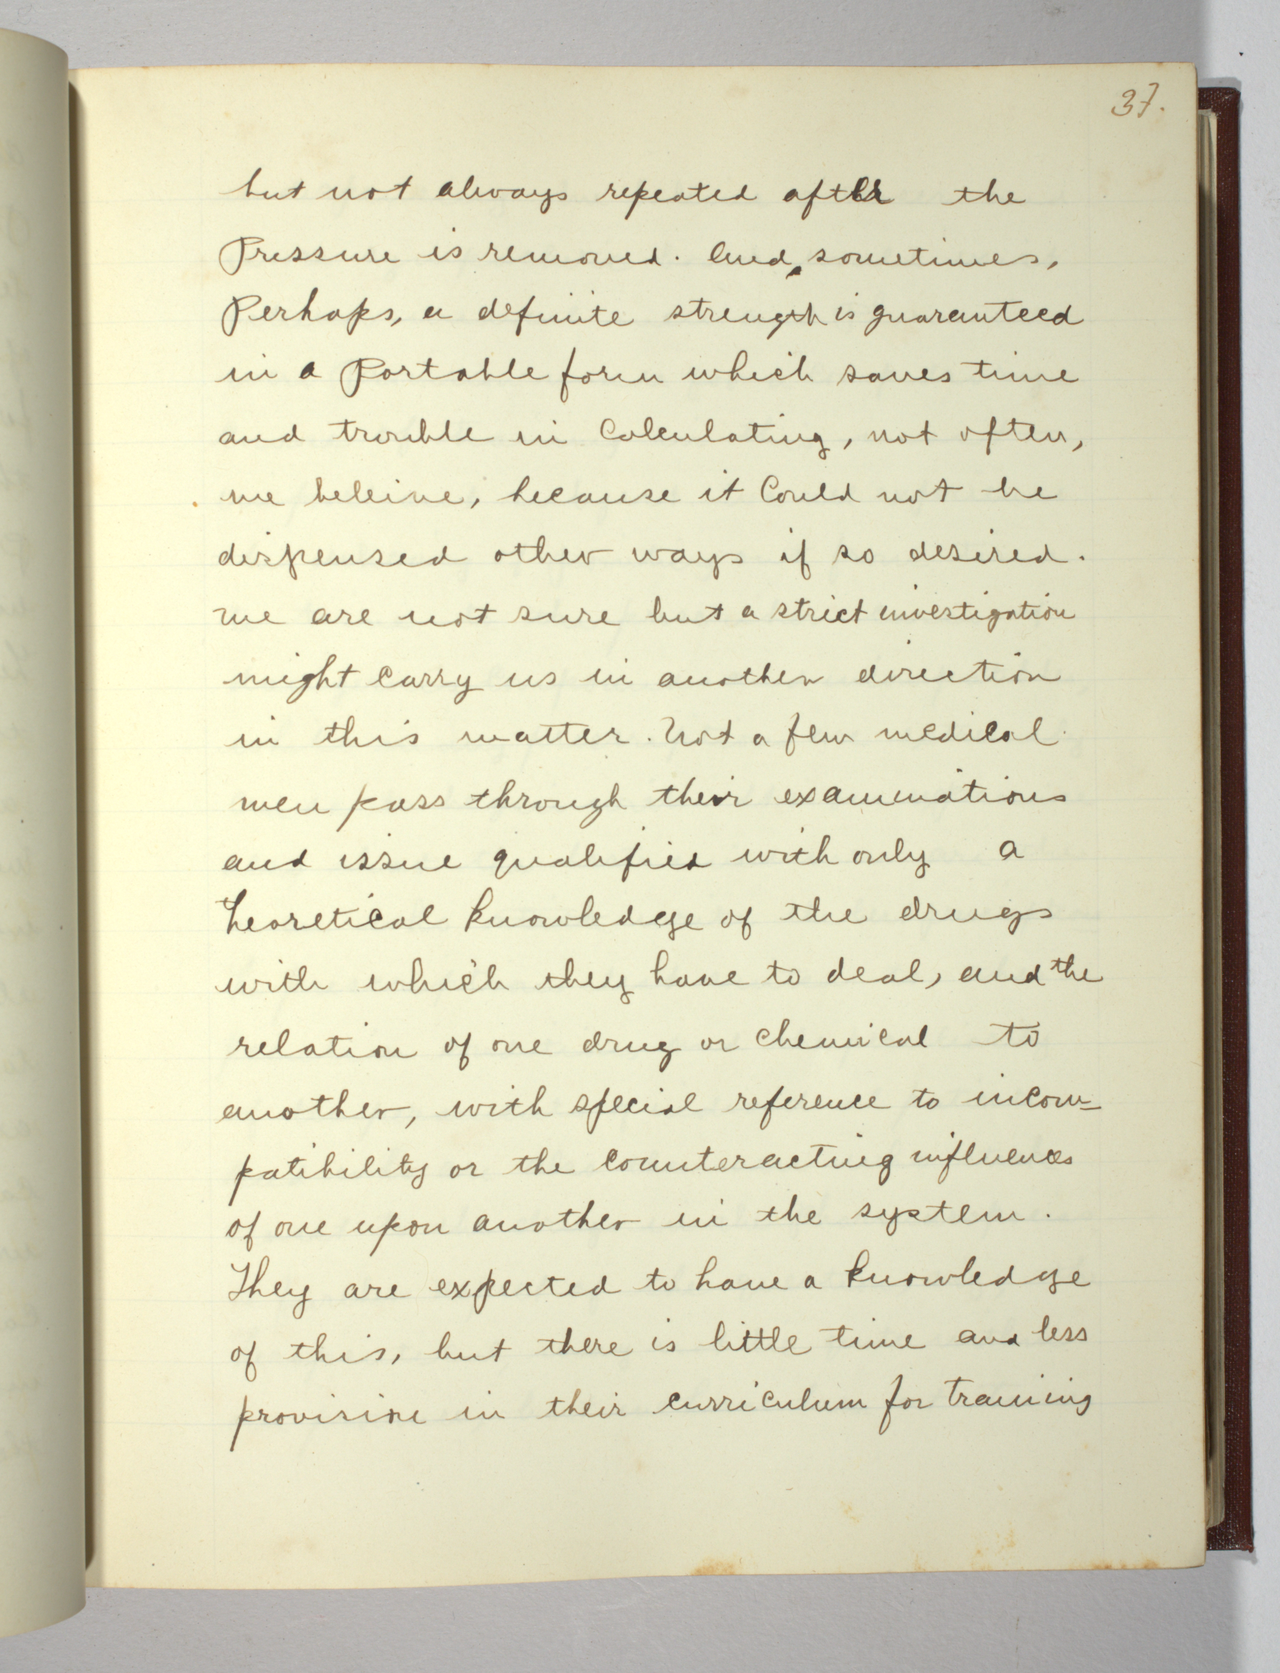 37.
but not always repeated after the
Pressure is removed. And, sometimes,
Perhaps, a definite strength is guaranteed
in a Portable form which saves time
and trouble in Calculating, not often,
we beleive, because it Could not be
dispensed other ways if so desired.
We are not sure but a strict investigation
might carry us in another direction
in this matter. Not a few medical
men pass through their examinations
and issue qualified with only a
theoretical knowledge of the drugs
with which they have to deal, and the
relation of one drug or chemical to
another, with special reference to incom-
patibility or the counteracting influences
of one upon another in the system.
They are expected to have a knowledge
of this, but there is little time and less
provision in their curriculum for training